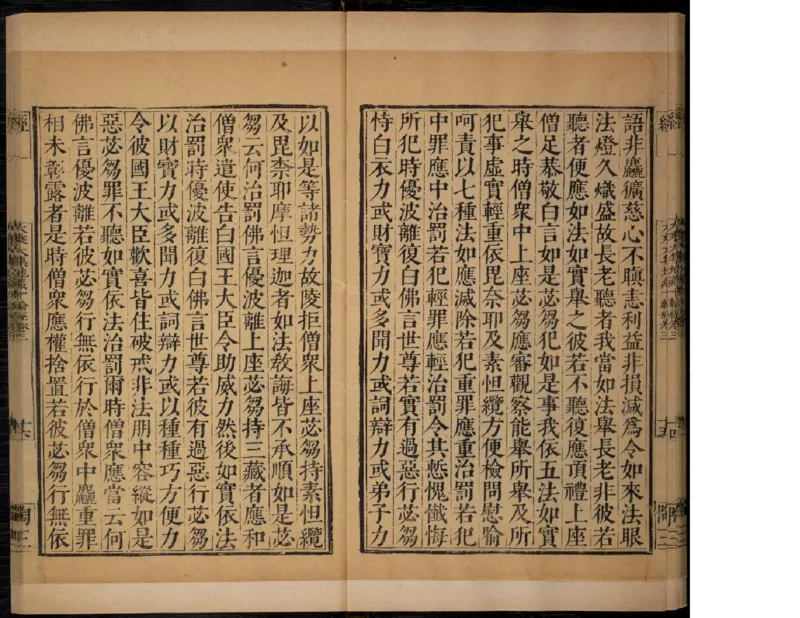 語非麤獷慈心不瞋恚利益非損減爲令如來法眼
法燈久熾盛故長老聽者我當如法舉長老非彼若
聽者便應如法如實舉之彼若不聽復應頂禮上座
僧足恭敬白言如是苾芻犯如是事我依五法如實
舉之時僧眾中上座苾芻應審觀察能舉所舉及所
犯事虛實輕重依毘奈耶及素怛纜方便檢問慰喻
呵責以七種法如應滅除若犯重罪應重治罰若犯
中罪應中治罰若犯輕罪應輕治罰令其慙愧懺悔
所犯時優波離復白佛言世尊若實有過惡行苾芻
恃白衣力或財寶力或多聞力或詞辯力或弟子力
以如是等諸勢力故陵拒僧眾上座苾芻持素怛纜
及毘柰耶摩怛理迦者如法教誨皆不承順如是苾
芻云何治罰佛言優波離上座苾芻持三藏者應和
僧眾遣使告白國王大臣令助威力然後如實依法
治罰時優波離復白佛言世尊若彼有過惡行苾芻
以財寶力或多聞力或詞辯力或以種種巧方便力
令彼國王大臣歡喜皆住破戒非法朋中容縱如是
惡苾芻罪不聽如實依法治罰爾時僧眾應當云何
佛言優波離若彼苾芻行無依行於僧眾中麤重罪
相未彰露者是時僧眾應權捨置若彼苾芻行無依